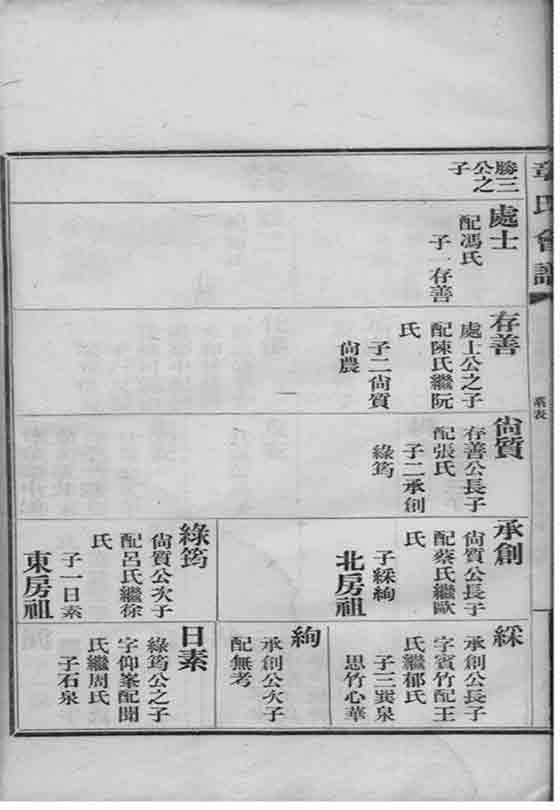 章氏會譜
系表
勝三
公之
子
處士
配馮氏
子一存善
存善
處士公之子
配陳氏繼阮
氏
子二尙質
尙農
尙質
存善公長子
配張氏
子二承創
綠筠
承創
尙質公長子
配蔡氏繼歐
氏
子綵絢
北房祖
綠筠
尙質公次子
配呂氏繼徐
氏
子一日素
東房祖
綵
承創公長子
字賓竹配王
氏繼郁氏
子三巽泉
思竹心華
絢
承創公次子
配無考
日素
綠筠公之子
字仰峯配聞
氏繼周氏
子石泉